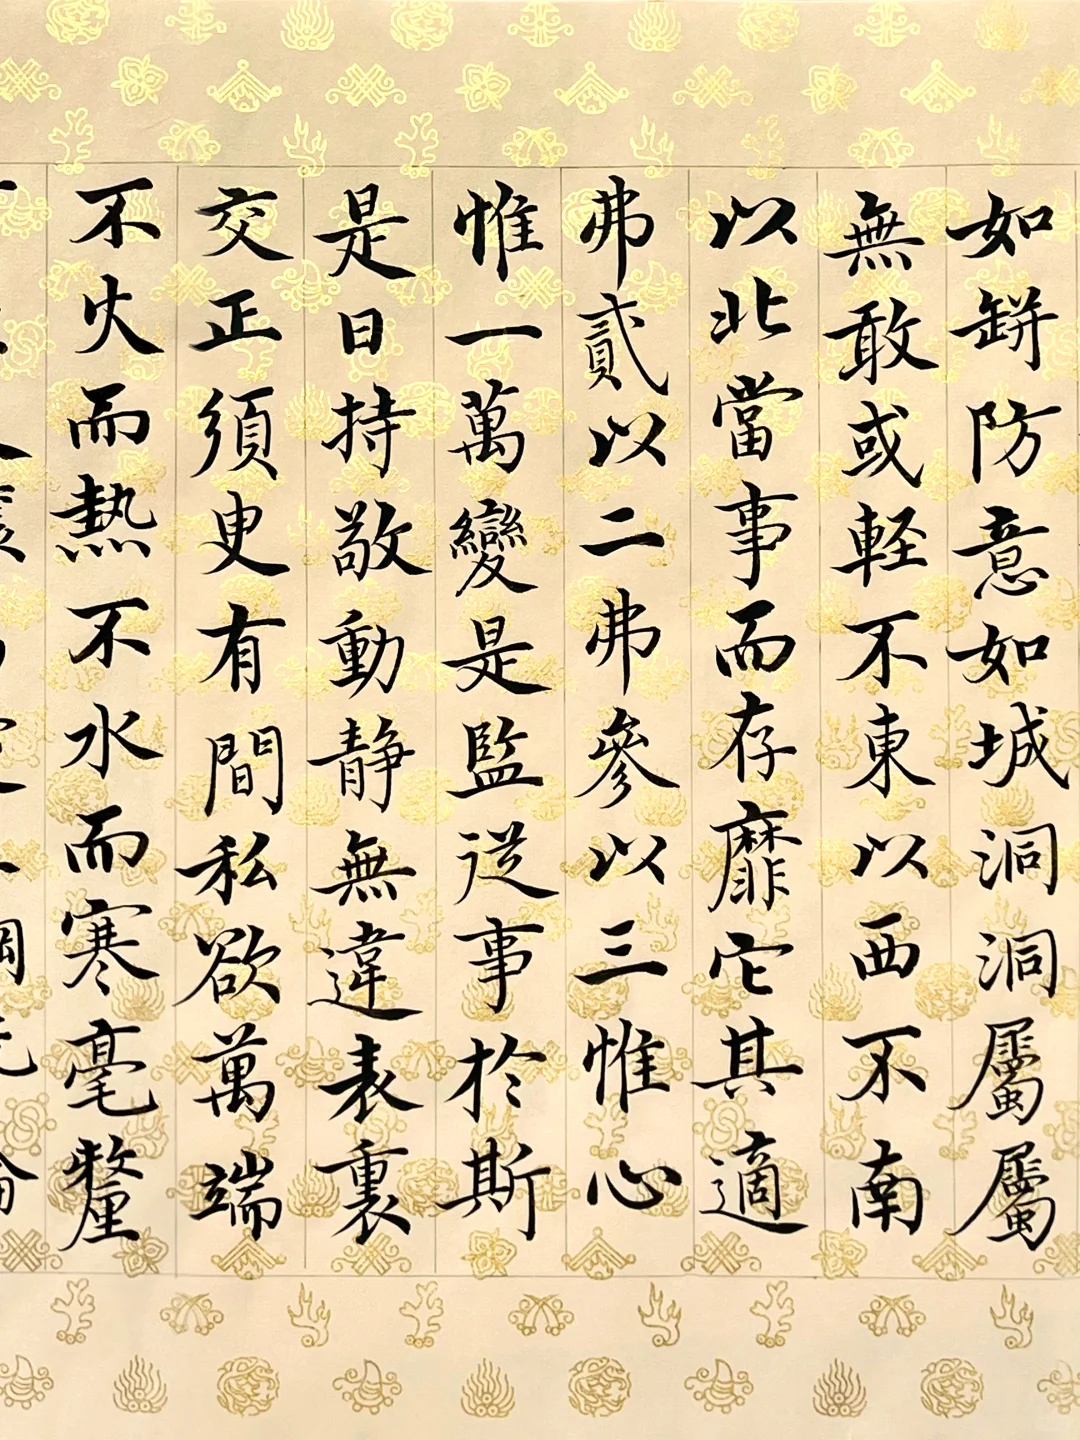 如缾防意如城洞洞屬屬
無敢或軽不東以西不南
以北當事而存靡它其適
弗貳以二弗參以三惟心
惟一萬變是監従事於斯
是日持敬動静無違表裏
交正須臾有間私欲萬端
不火而熱不水而寒毫釐